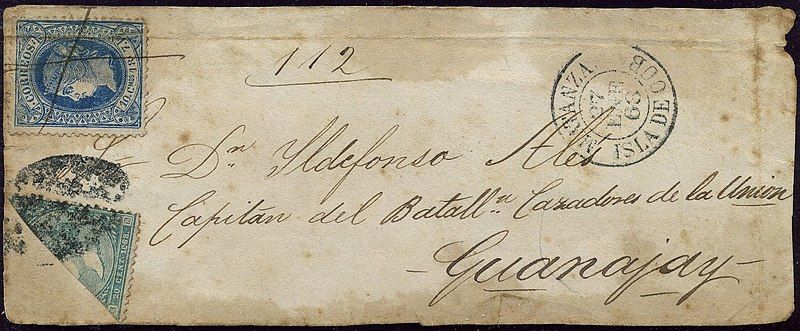 CORREOS
112
MATANZAS
27
ENE
68
ISLA DE CUBA
Dn Ildefonso Ales
Capitan del Batalln Cazadores de la Union
- Guanajay -
20 CENT